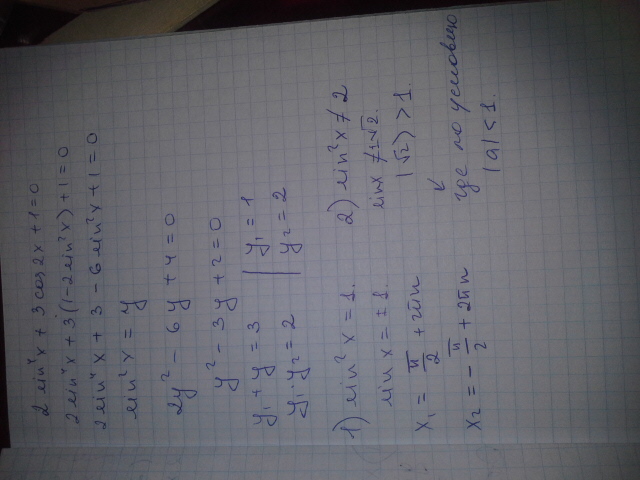 2 sin⁴x + 3 cos 2x + 1 = 0
2 sin⁴x + 3(1 - 2 sin²x) + 1 = 0
2 sin⁴x + 3 - 6 sin²x + 1 = 0
sin²x = y
2y² - 6y + 4 = 0
y² - 3y + 2 = 0
y₁ + y = 3 | y₁ = 1
y₁ · y₂ = 2 | y₂ = 2
1) sin²x = 1.
sin x = ± 1.
x₁ = π/2 + 2πn
x₂ = - π/2 + 2πn
2) sin²x ≠ 2
sin x ≠ ±√2.
|√2| > 1.
где по условию
|a| < 1.